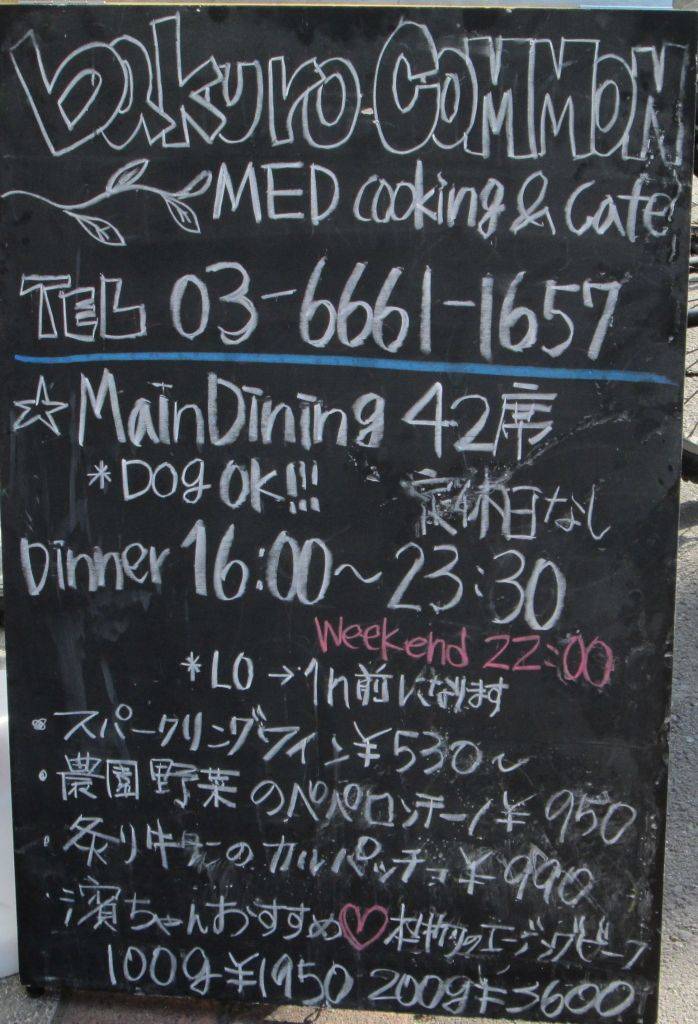 bakuro COMMON
MED cooking & cafe
TEL 03-6661-1657
☆ MainDining 42席
*Dog OK!!!
定休日なし
Dinner 16:00～23:30
Weekend 22:00
*LO→1h前になります
・スパークリングワイン¥530～
・農園野菜のペペロンチーノ¥950
・炙り牛のカルパッチョ¥990
・濱ちゃんおすすめ♡本物のエージングビーフ
100g¥1950 200g¥3600